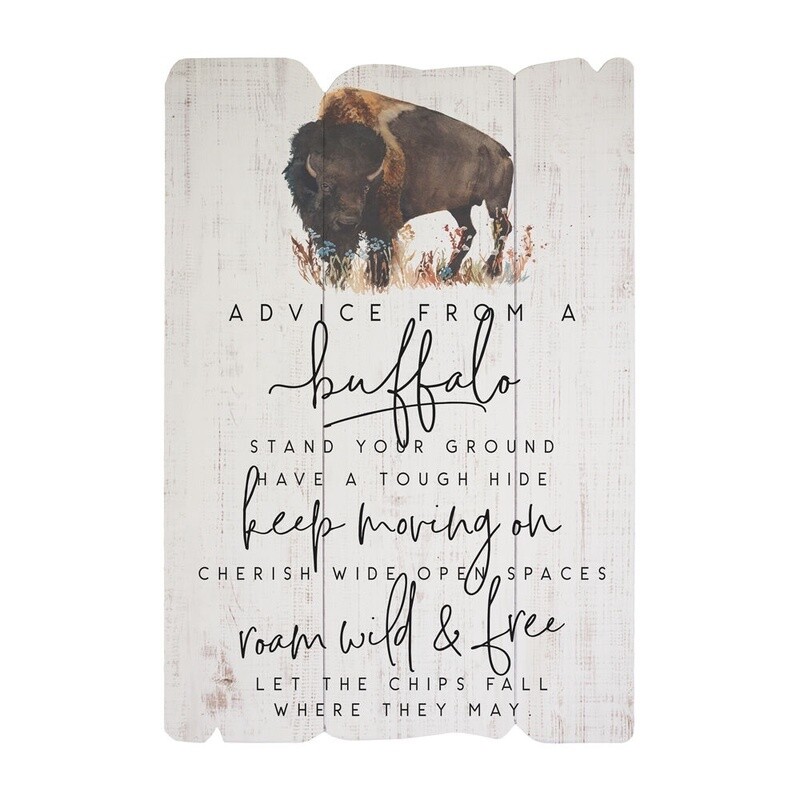 ADVICE FROM A
buffalo
STAND YOUR GROUND
HAVE A TOUGH HIDE
keep moving on
CHERISH WIDE OPEN SPACES
roam wild & free
LET THE CHIPS FALL
WHERE THEY MAY.